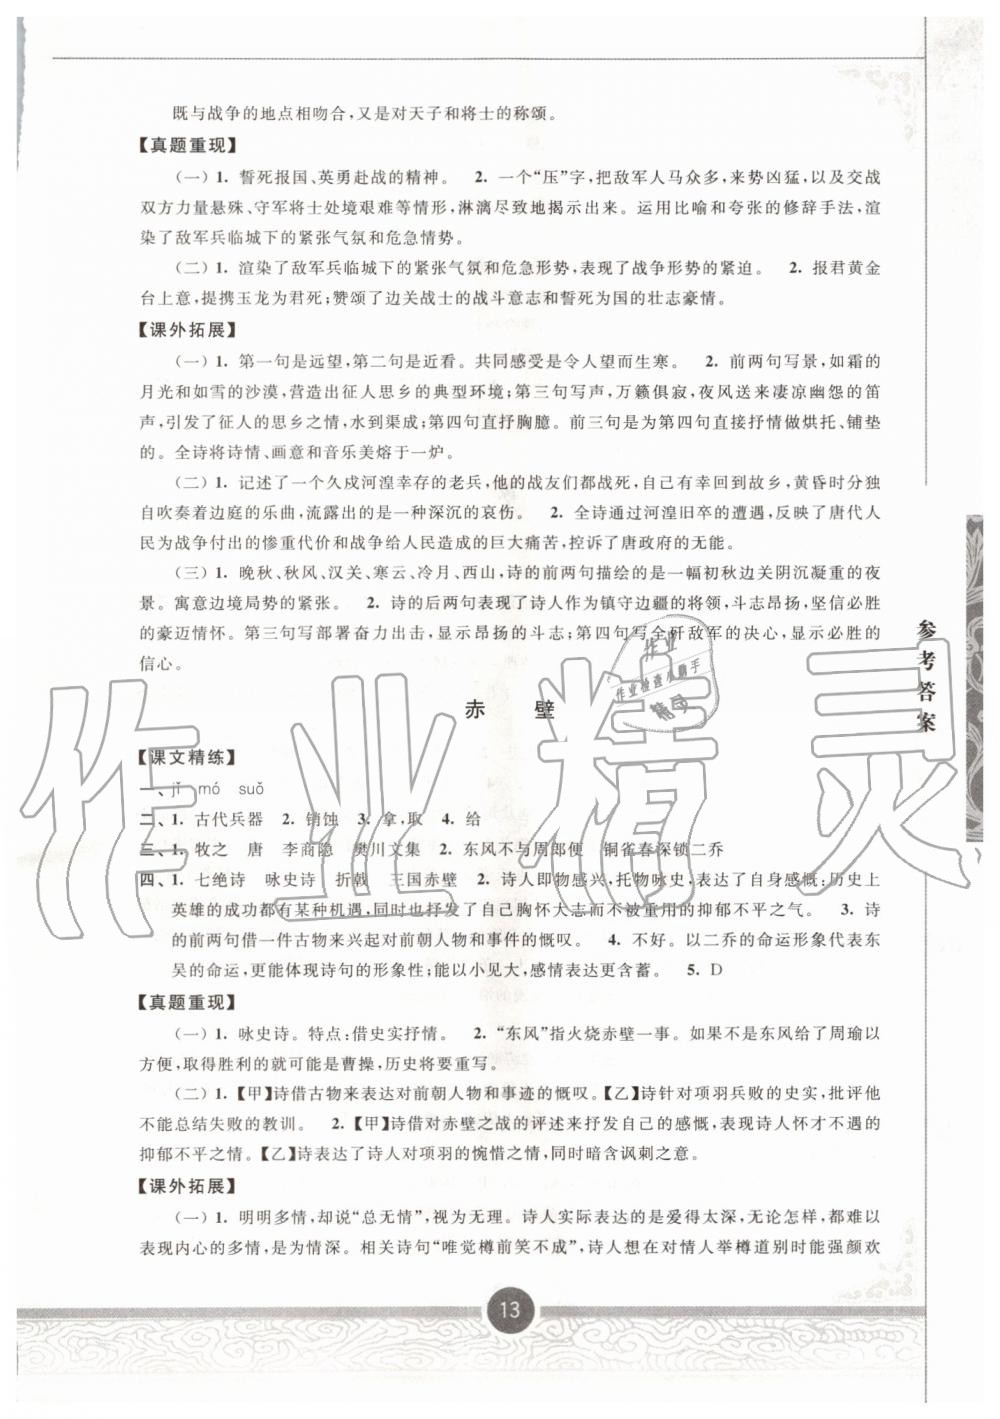 既与战争的地点相吻合,又是对天子和将士的称颂。
【真题重现】
(一)1. 誓死报国、英勇赴战的精神。 2. 一个“压”字,把敌军人马众多,来势凶猛,以及交战
双方力量悬殊、守军将士处境艰难等情形,淋漓尽致地揭示出来。运用比喻和夸张的修辞手法,渲
染了敌军兵临城下的紧张气氛和危急情势。
(二)1. 渲染了敌军兵临城下的紧张气氛和危急形势,表现了战争形势的紧迫。 2. 报君黄金
台上意,提携玉龙为君死;赞颂了边关战士的战斗意志和誓死为国的壮志豪情。
【课外拓展】
(一)1. 第一句是远望,第二句是近看。共同感受是令人望而生寒。 2. 前两句写景,如霜的
月光和如雪的沙漠,营造出征人思乡的典型环境;第三句写声,万籁俱寂,夜风送来凄凉幽怨的笛
声,引发了征人的思乡之情,水到渠成;第四句直抒胸臆。前三句是为第四句直接抒情做烘托、铺垫
的。全诗将诗情、画意和音乐美熔于一炉。
(二)1. 记述了一个久戍河湟幸存的老兵,他的战友们都战死,自己有幸回到故乡,黄昏时分独
自吹奏着边庭的乐曲,流露出的是一种深沉的哀伤。 2. 全诗通过河湟旧卒的遭遇,反映了唐代人
民为战争付出的惨重代价和战争给人民造成的巨大痛苦,控诉了唐政府的无能。
(三)1. 晚秋、秋风、汉关、寒云、冷月、西山,诗的前两句描绘的是一幅初秋边关阴沉凝重的夜
景。寓意边境局势的紧张。 2. 诗的后两句表现了诗人作为镇守边疆的将领,斗志昂扬,坚信必胜
的豪迈情怀。第三句写部署奋力出击,显示昂扬的斗志;第四句写全歼敌军的决心,显示必胜的
信心。
赤 壁
【课文精练】
一、jǐ mó suǒ
二、1. 古代兵器 2. 销蚀 3. 拿,取 4. 给
三、1. 牧之 唐 李商隐 樊川文集 2. 东风不与周郎便 铜雀春深锁二乔
四、1. 七绝诗 咏史诗 折戟 三国赤壁 2. 诗人即物感兴,托物咏史,表达了感慨:历史上
英雄的成功都有某种机遇,同时也抒发了自己胸怀大志而不被重用的抑郁不平之气。 3. 诗
的前两句借一件古物来兴起对前朝人物和事件的慨叹。 4. 不好。以二乔的命运形象代表东
吴的命运,更能体现诗句的形象性;能以小见大,感情表达更含蓄。 5. D
【真题重现】
(一)1. 咏史诗。特点:借史实抒情。 2. “东风”指火烧赤壁一事。如果不是东风给了周瑜以
方便,取得胜利的就可能是曹操,历史将要重写。
(二)1. 【甲】诗借古物来表达对前朝人物和事迹的慨叹。【乙】诗针对项羽兵败的史实,批评他
不能总结失败的教训。 2. 【甲】诗借对赤壁之战的评述来抒发自己的感慨,表现诗人怀才不遇的
抑郁不平之情。【乙】诗表达了诗人对项羽的惋惜之情,同时暗含讽刺之意。
【课外拓展】
(一)1. 明明多情,却说“总无情”,视为无理。诗人实际表达的是爱得太深,无论怎样,都难以
表现内心的多情,是为情深。相关诗句“唯觉樽前笑不成”,诗人想在对情人举樽道别时能强颜欢
13
参考答案
作业精灵
作业
作业检查小助手
精灵